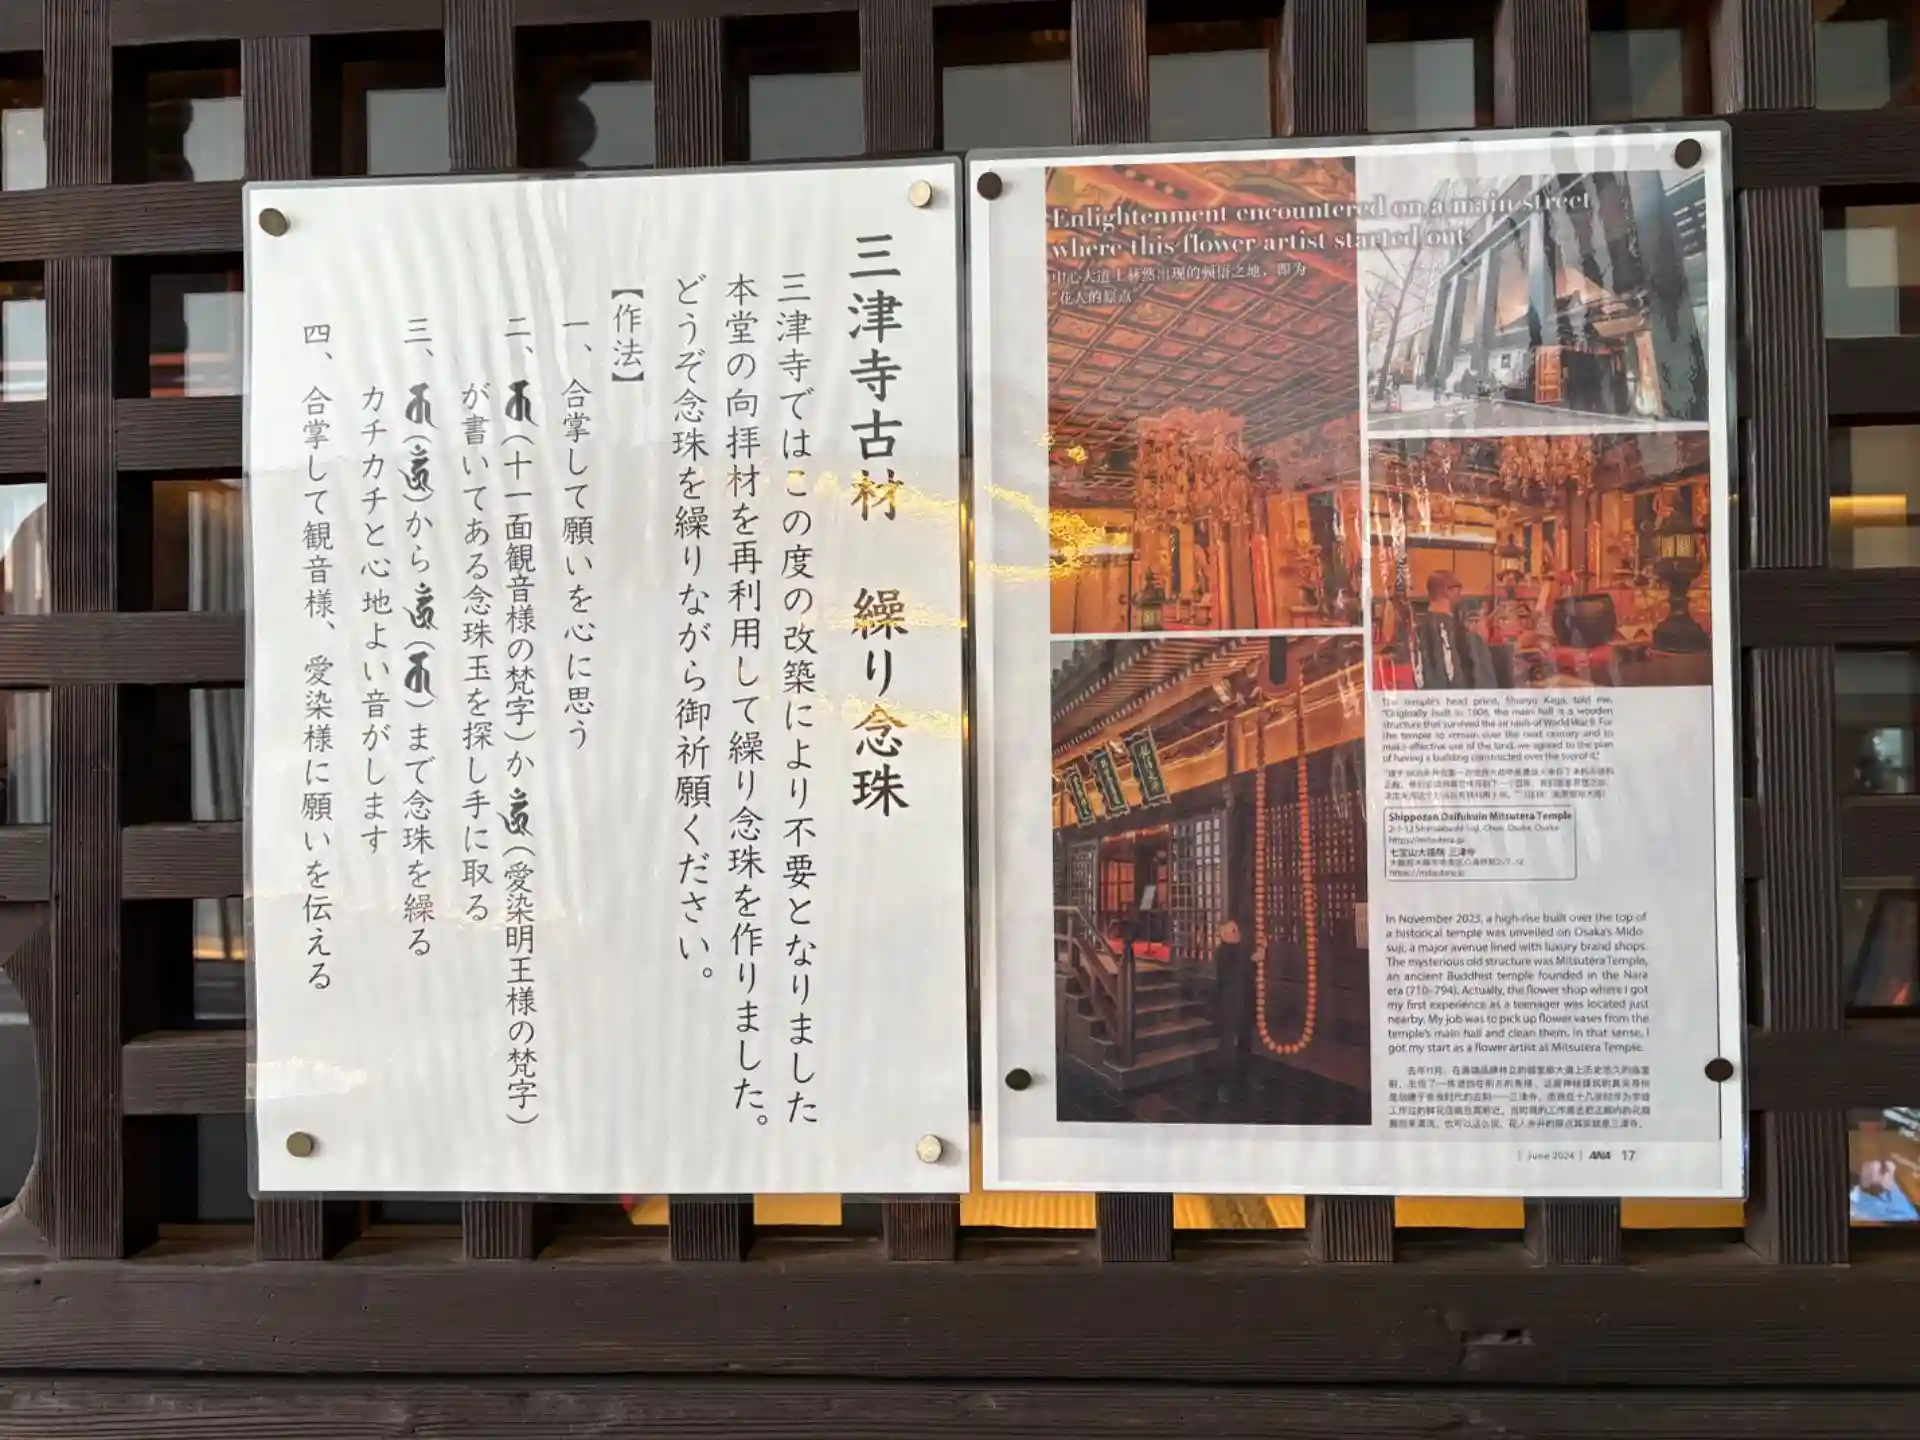 三津寺古材　繰り念珠
三津寺ではこの度の改築により不要となりました
本堂の向拝材を再利用して繰り念珠を作りました。
どうぞ念珠を繰りながら御祈願ください。
【作法】
一、合掌して願いを心に思う
二、(十一面観音様の梵字)か(愛染明王様の梵字)
が書いてある念珠玉を探し手に取る
三、から()まで念珠を繰る
カチカチと心地よい音がします
四、合掌して観音様、愛染様に願いを伝える
Enlightenment encountered on a main street
where this flower artist started out
中心大道上赫然出现的顿悟之地，即为
“花人的原点”
The temple's head priest, Shunyo Kaga, told me,
"Originally built in 1808, the main hall is a wooden
structure that survived the air raids of World War II. For
the temple to remain over the next century and to
make effective use of the land, we agreed to the plan
of having a building constructed over the top of it."
Shippozan Daifukuin Mitsutera Temple
2-7-12 Shinsaibashi-Suji, Chuo, Osaka, Osaka
https://mitsutera.jp
七宝山大福院 三津寺
大阪府大阪市中央区心斎桥筋2-7-12
https://mitsutera.jp
In November 2023, a high-rise built over the top of
a historical temple was unveiled on Osaka's Mido-
suji, a major avenue lined with luxury brand shops.
The mysterious old structure was Mitsutera Temple,
an ancient Buddhist temple founded in the Nara
era (710–794). Actually, the flower shop where I got
my first experience as a teenager was located just
nearby. My job was to pick up flower vases from the
temple's main hall and clean them. In that sense, I
got my start as a flower artist at Mitsutera Temple.
June 2024 | ANA 17